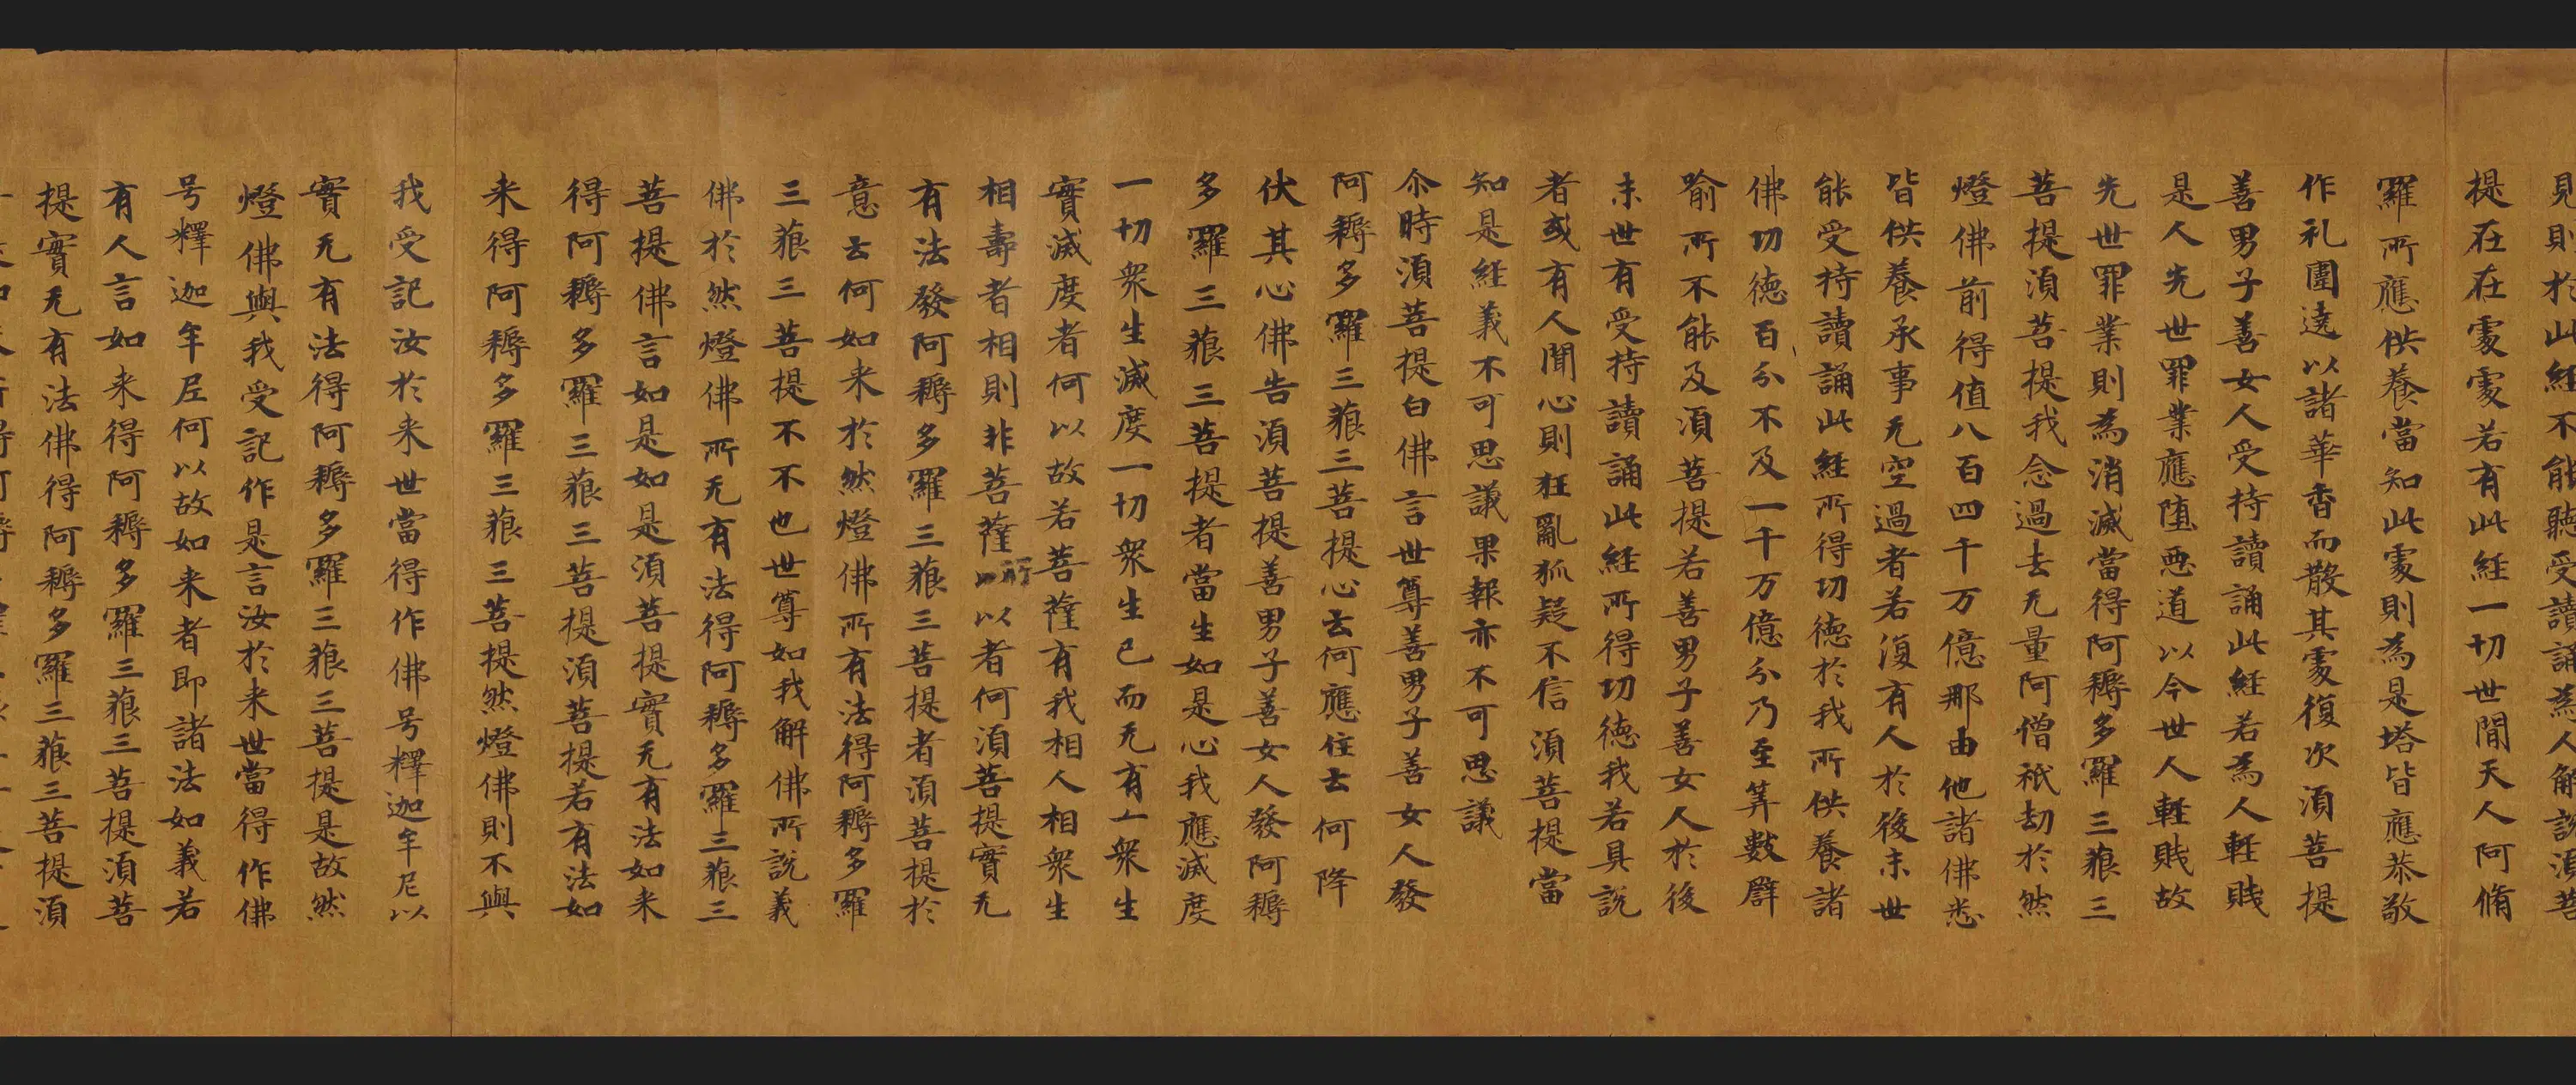 見則於此經不能聽受讀誦為人解說須菩
提在在處處若有此經一切世間天人阿脩
羅所應供養當知此處則為是塔皆應恭敬
作礼圍遶以諸華香而散其處復次須菩提
善男子善女人受持讀誦此經若為人輕賤
是人先世罪業應墮惡道以今世人輕賤故
先世罪業則為消滅當得阿耨多羅三藐三
菩提須菩提我念過去无量阿僧祇劫於然
燈佛前得值八百四千万億那由他諸佛悉
皆供養承事无空過者若復有人於後末世
能受持讀誦此經所得功德於我所供養諸
佛功德百分不及一千万億分乃至筭數譬
喻所不能及須菩提若善男子善女人於後
末世有受持讀誦此經所得功德我若具說
者或有人聞心則狂亂狐疑不信須菩提當
知是經義不可思議果報亦不可思議
尒時須菩提白佛言世尊善男子善女人發
阿耨多羅三藐三菩提心云何應住云何降
伏其心佛告須菩提善男子善女人發阿耨
多羅三藐三菩提者當生如是心我應滅度
一切衆生滅度一切衆生已而无有一衆生
實滅度者何以故若菩薩有我相人相衆生
相壽者相則非菩薩所以者何須菩提實无
有法發阿耨多羅三藐三菩提者須菩提於
意云何如来於然燈佛所有法得阿耨多羅
三藐三菩提不不也世尊如我解佛所說義
佛於然燈佛所无有法得阿耨多羅三藐三
菩提佛言如是如是須菩提實无有法如来
得阿耨多羅三藐三菩提須菩提若有法如
来得阿耨多羅三藐三菩提然燈佛則不與
我受記汝於来世當得作佛号釋迦牟尼以
實无有法得阿耨多羅三藐三菩提是故然
燈佛與我受記作是言汝於来世當得作佛
号釋迦牟尼何以故如来者即諸法如義若
有人言如来得阿耨多羅三藐三菩提須菩
提實无有法佛得阿耨多羅三藐三菩提須